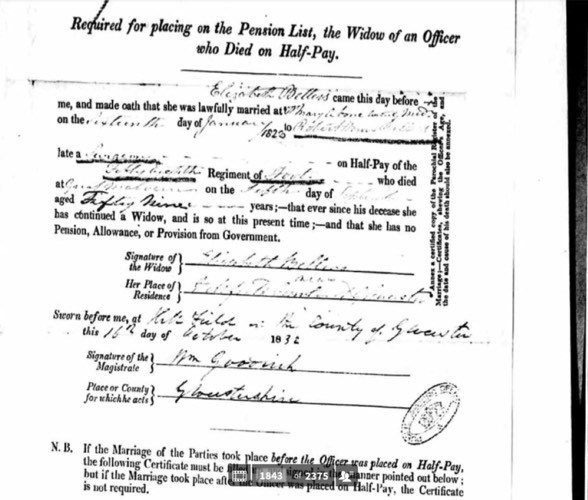 Required for placing on the Pension List, the Widow of an Officer
who Died on Half-Pay.
Elizabeth Bellers came this day before
me, and made oath that she was lawfully married at Marylebone
on the sixteenth day of January 1823 to Robert
late a Surgeon on Half-Pay of the
Regiment of Foot who died
at on the day of
aged Fifty Nine years;—that ever since his decease she
has continued a Widow, and is so at this present time;—and that she has no
Pension, Allowance, or Provision from Government.
Signature of the Widow } Elizabeth Bellers
Her Place of Residence }
Sworn before me, at Field in the County of Gloucester
this 16th day of October 1832
Signature of the Magistrate } Wm
Place or County for which he acts } Gloucestershire
N. B. If the Marriage of the Parties took place before the Officer was placed on Half-Pay,
the following Certificate must be signed in the manner pointed out below;
but if the Marriage took place after the Officer was placed on Half-Pay, the Certificate
is not required.
Annex a certified copy of the Parochial Register of the
Marriage;—Certificates, shewing the Officer's Age, and
the date and cause of his death should also be annexed.
1843 of 2375